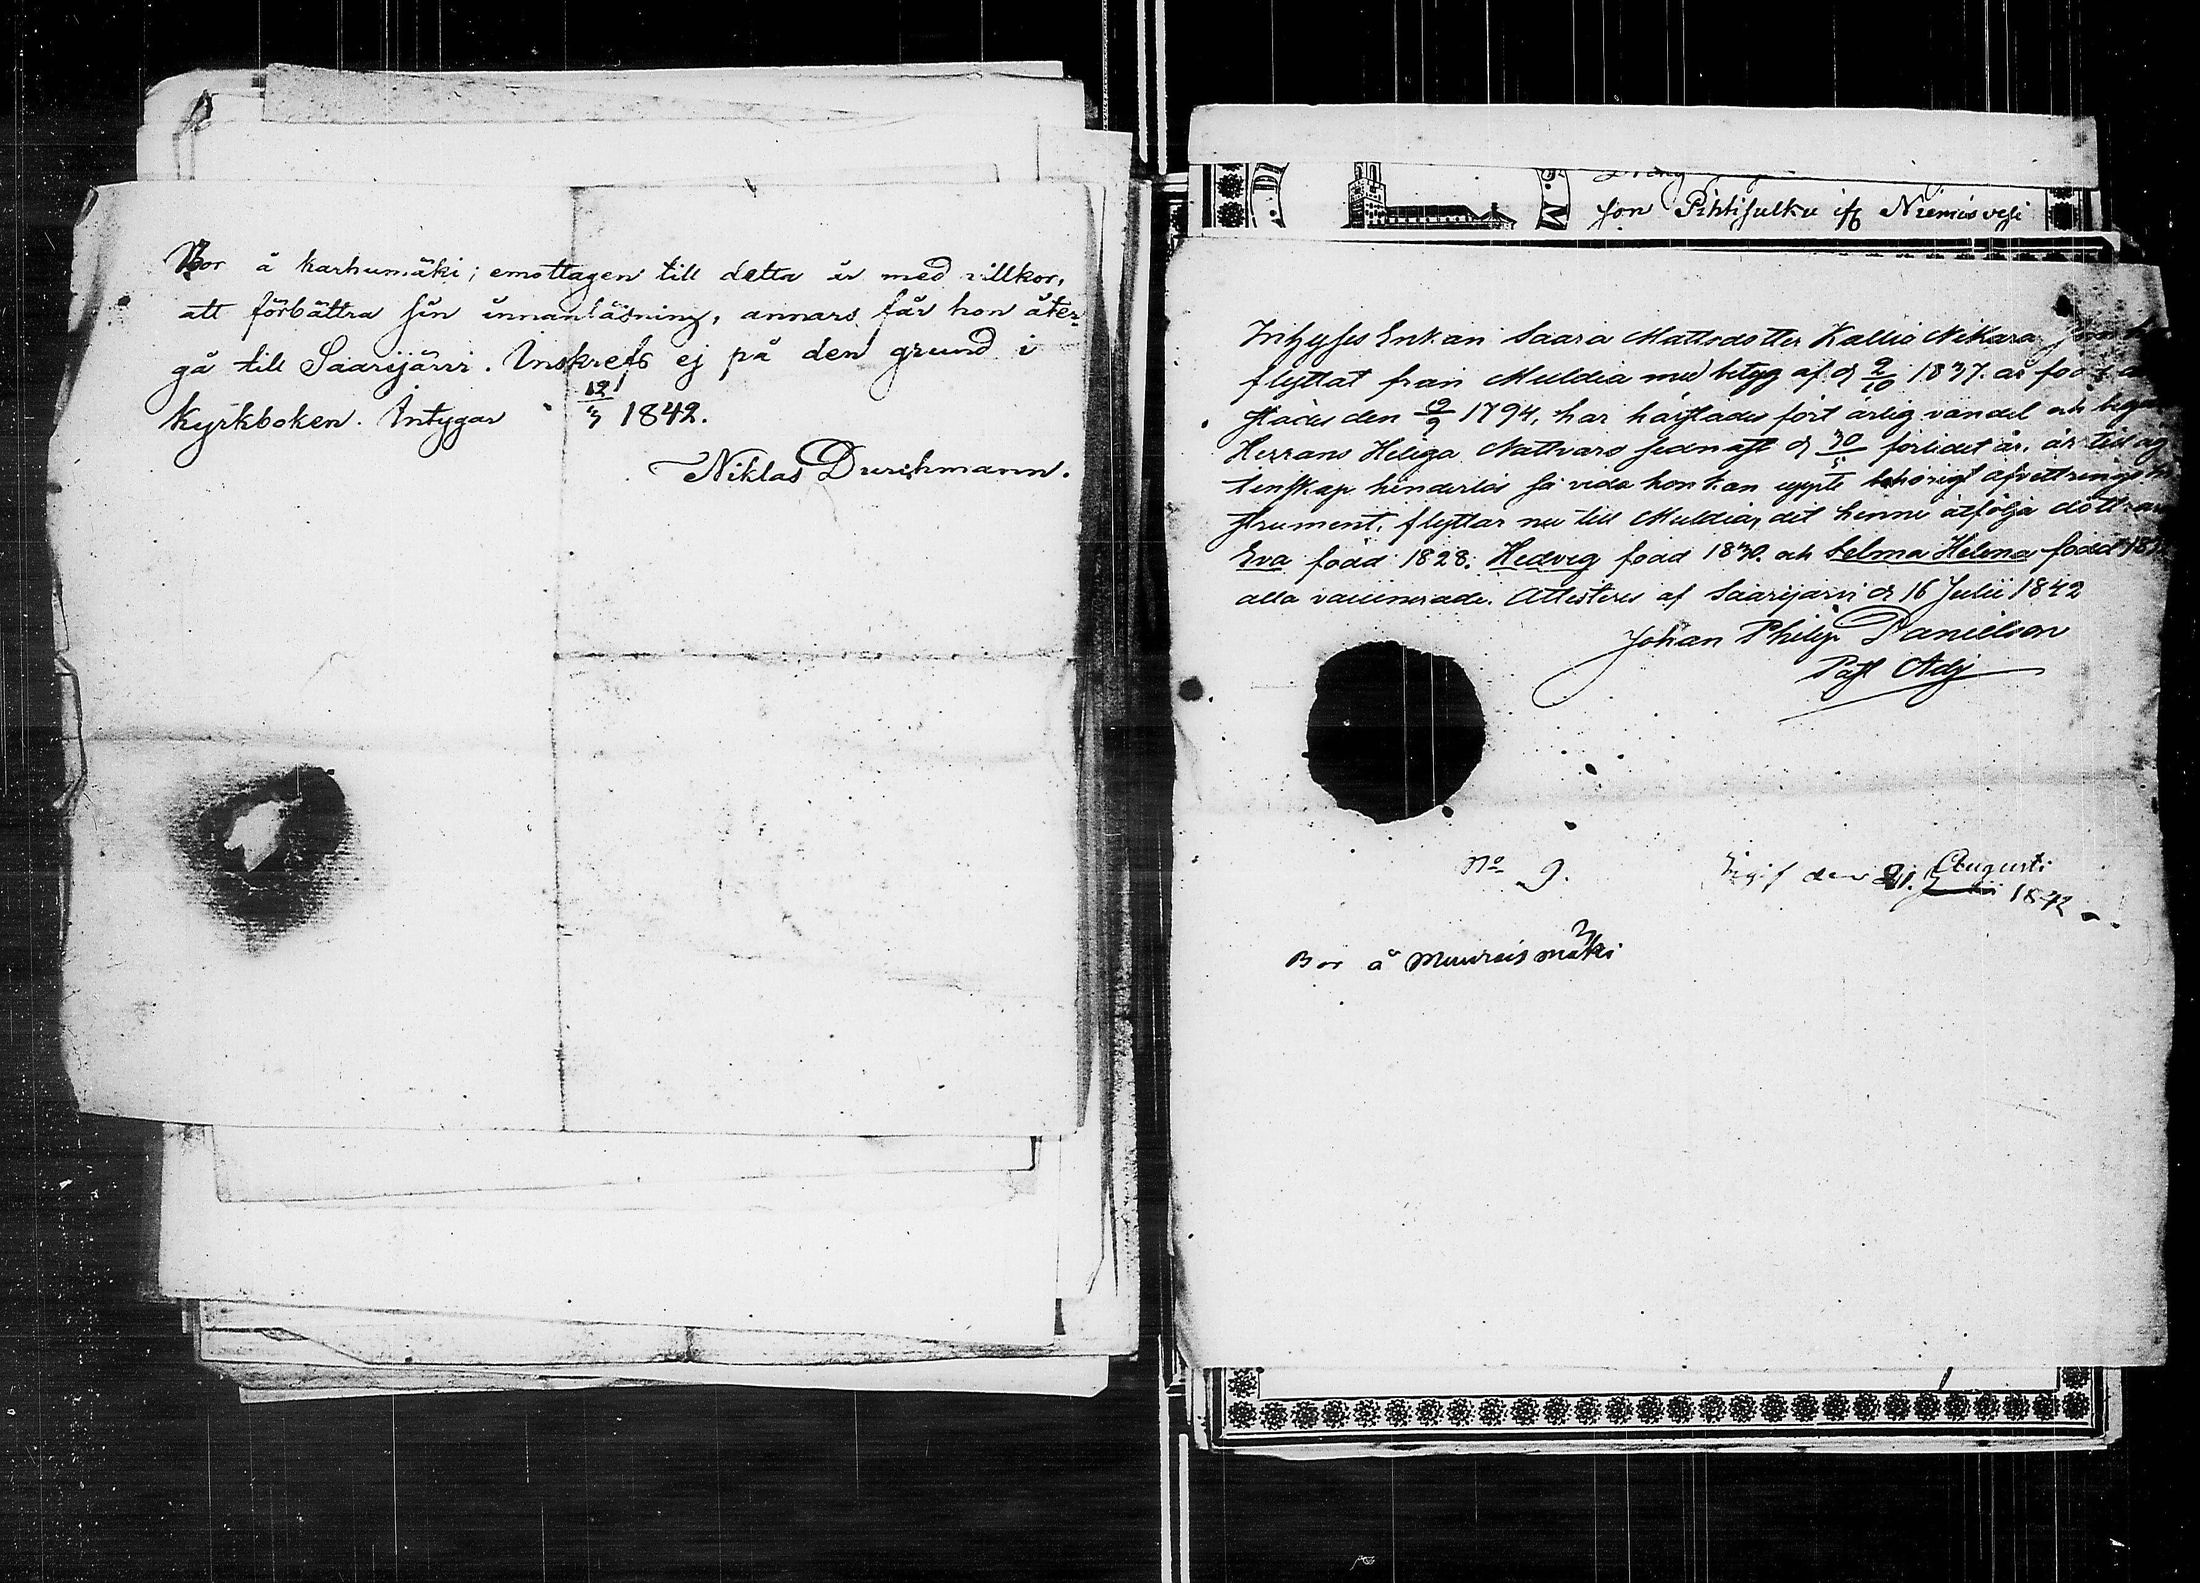 Bor å Karhumäki; emottagen till detta år med villkor,
att förbättra sin innanläsning, annars får hon åter-
gå till Saarijärvi. Inskrefs ej på den grund i
Kyrkboken. Intygar 12/3 1842.
Niklas Durchmann.
son Pihtisulku if Niemisvesi
Inhyses Enkan Saara Mattsdotter Kallio Nikara, som
flyttat från Muldia med betyg af d 2/10 1837. är född
städes den 19/9 1794, har härstädes fört ärlig vandel och
Herrans Heliga Nattvard sednast d 30/5 förlidet år, är till äg
tenskap hinderlös så vida hon kan uppte behörigt afvittrings
strument, flyttar nu till Muldia, dit henne åtfölja döttrar
Eva född 1828. Hedvig född 1830. och Selma Helena född 18
alla vaccinerade. Attesteras af Saarijärvi d 16 Julii 1842
Johan Philip Danielson
Past Adj
No 9.
Ingif den 21. Augusti
1842
Bor å Muuraismäki